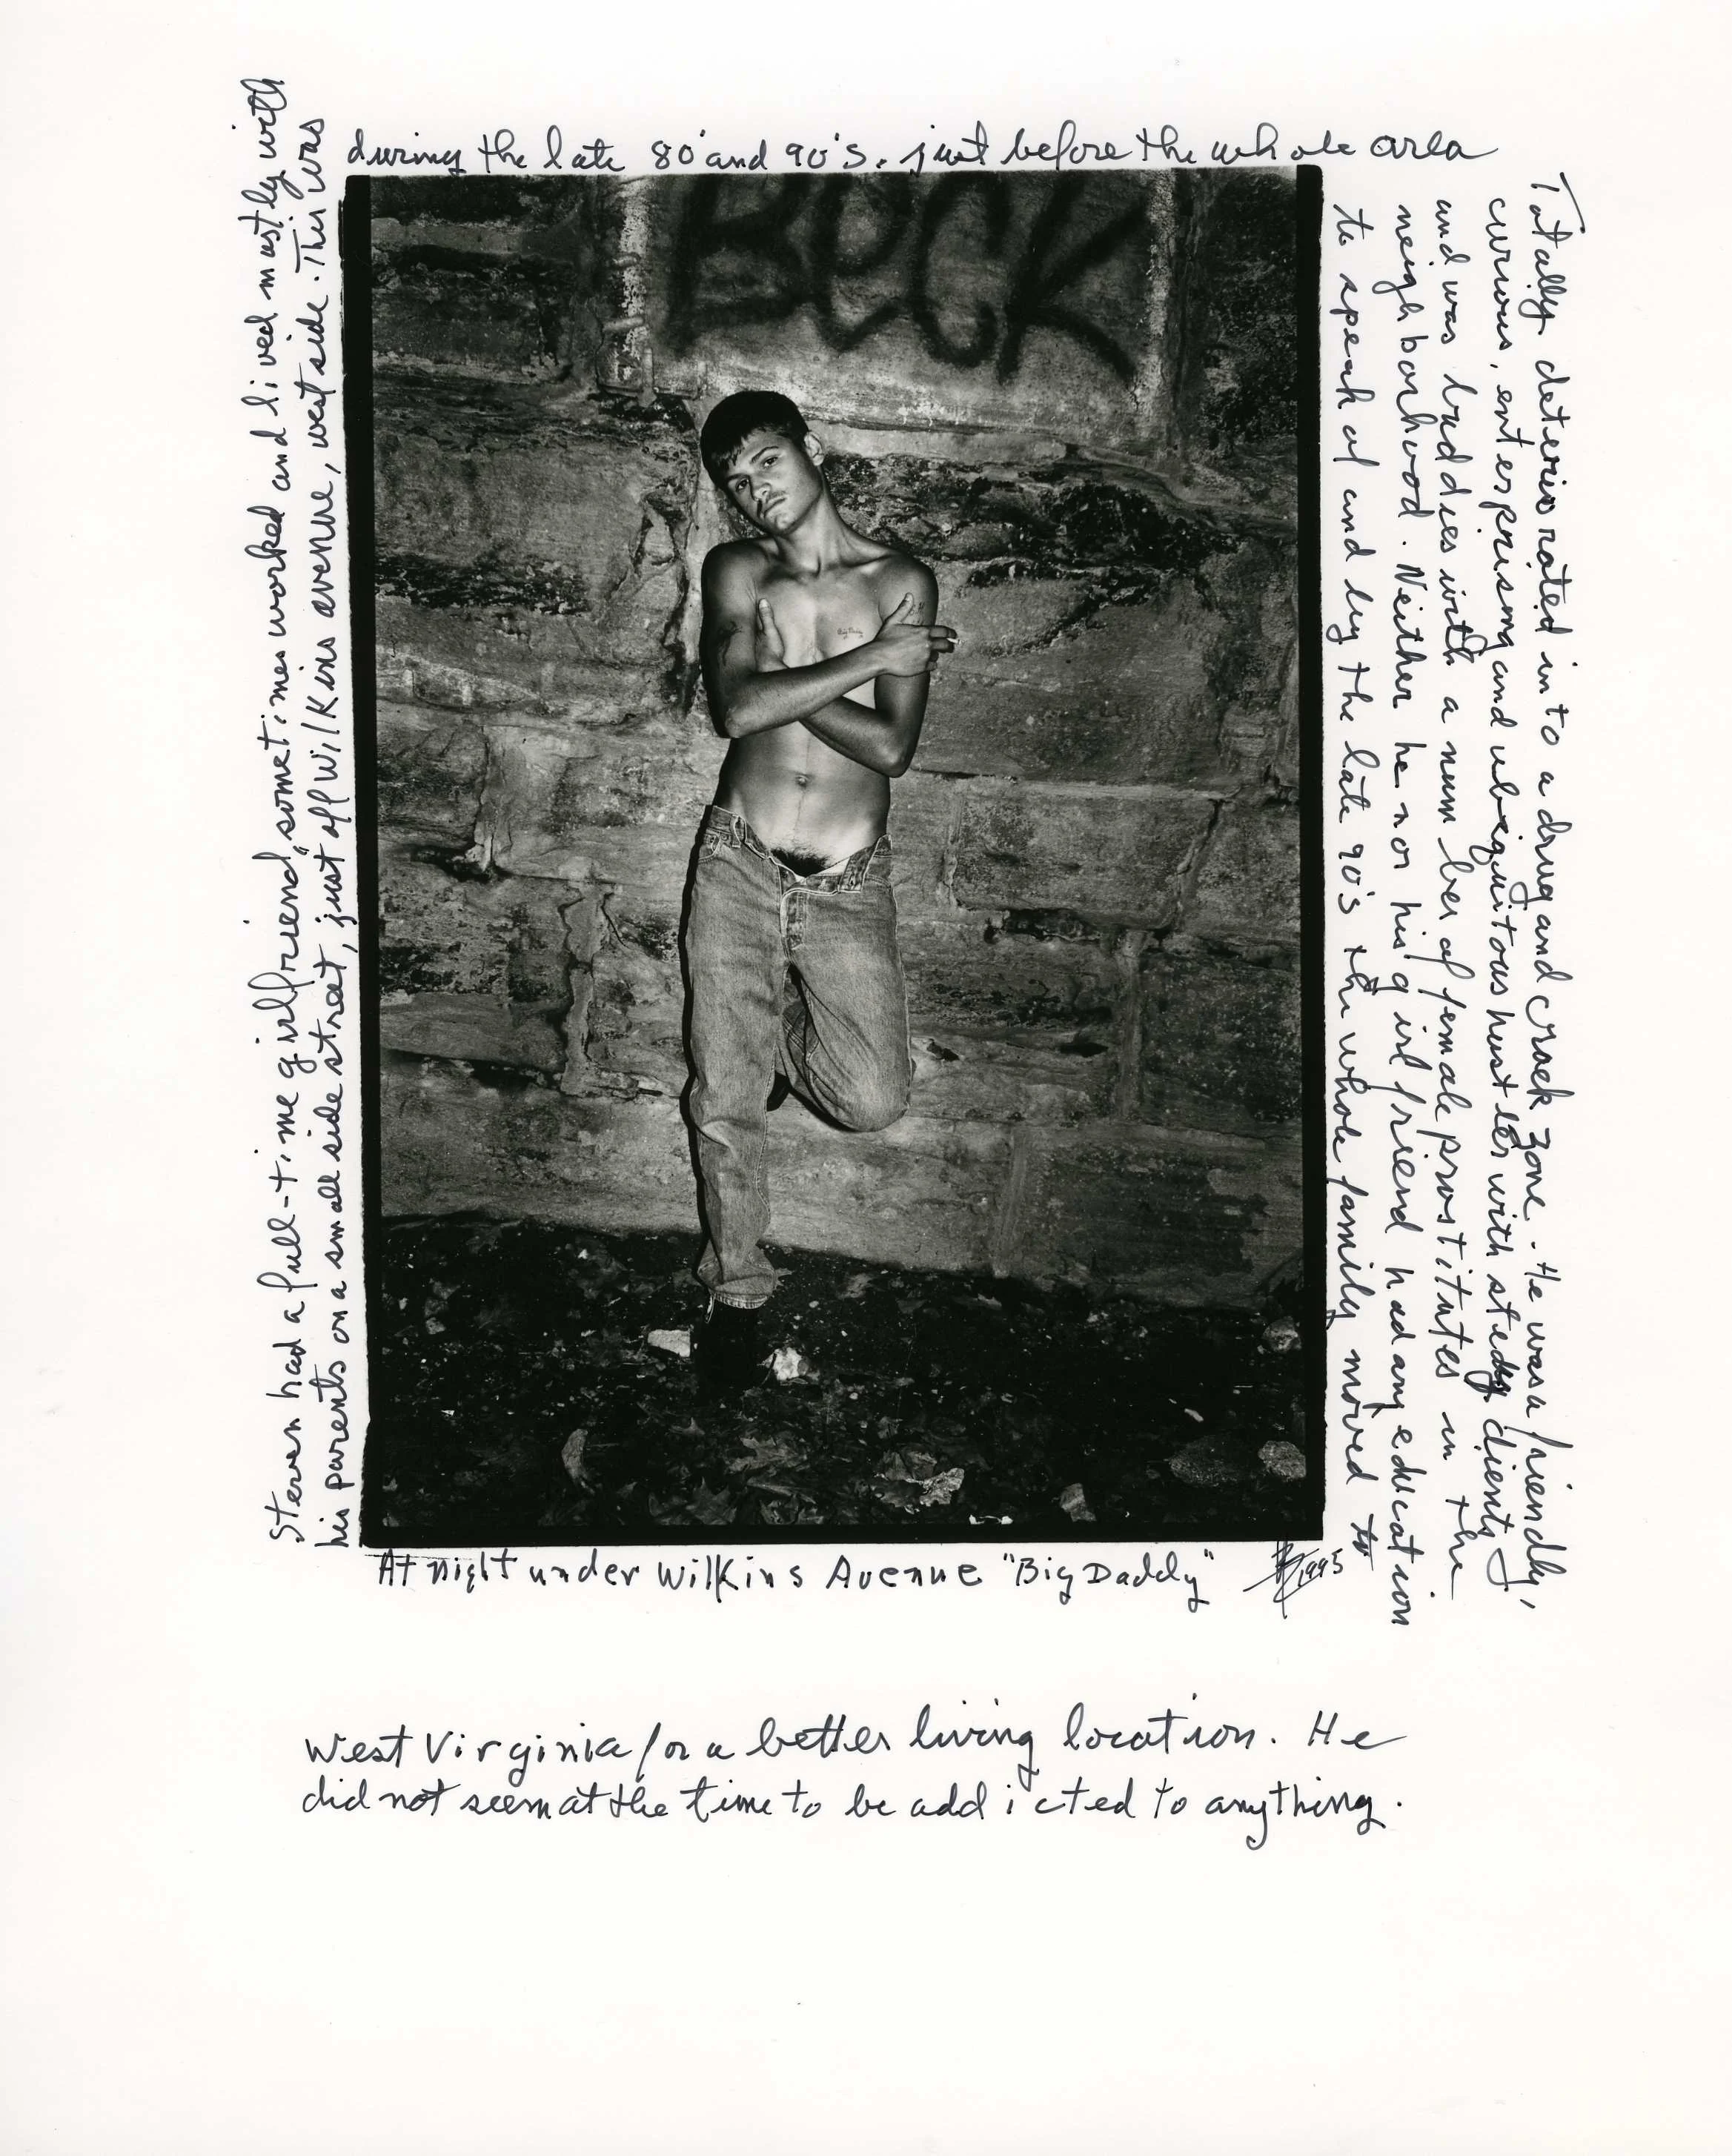 Steven had a full-time girlfriend, sometimes worked and lived mostly with
his parents on a small side street, just off Wilkins avenue, west side. This was
during the late 80's and 90's. just before the whole area
Totally deteriorated into a drug and crack zone. He was a friendly,
curious, enterprising and ubiquitous hustler with stedy clients
and was buddies with a number of female prostitutes in the
neighborhood. Neither he nor his girlfriend had any education
to speak of and by the late 90's the whole family moved to
West Virginia for a better living location. He
did not seem at the time to be addicted to anything.
BECK
Big Daddy
At night under Wilkins Avenue "Big Daddy" 1995